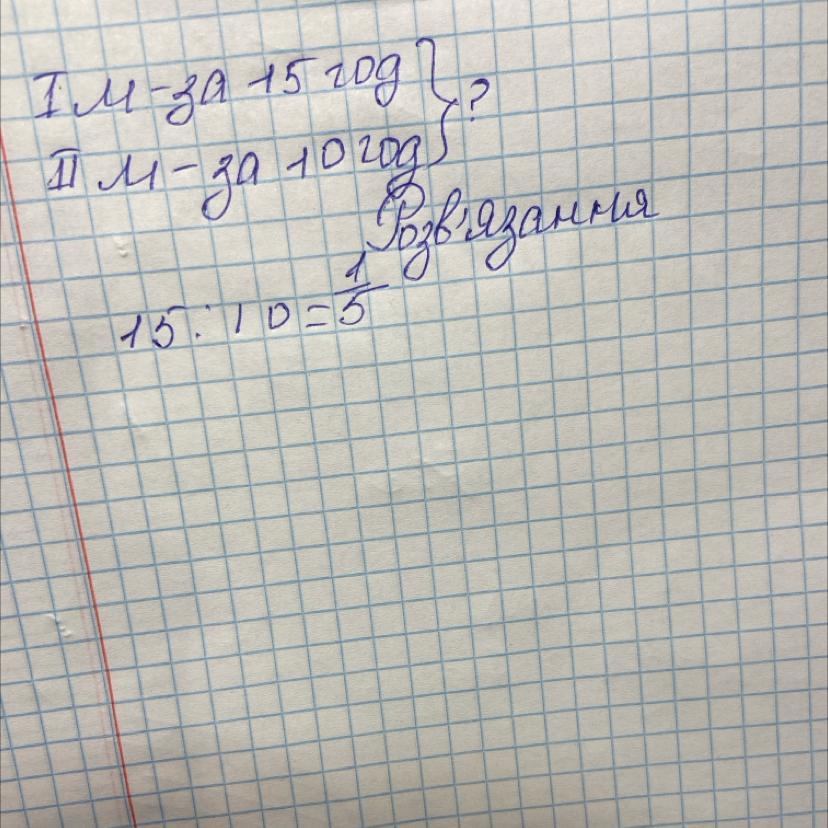 I м - за 15 год
II м - за 10 год } ?
Розв'язання
15 : 10 = 1/5